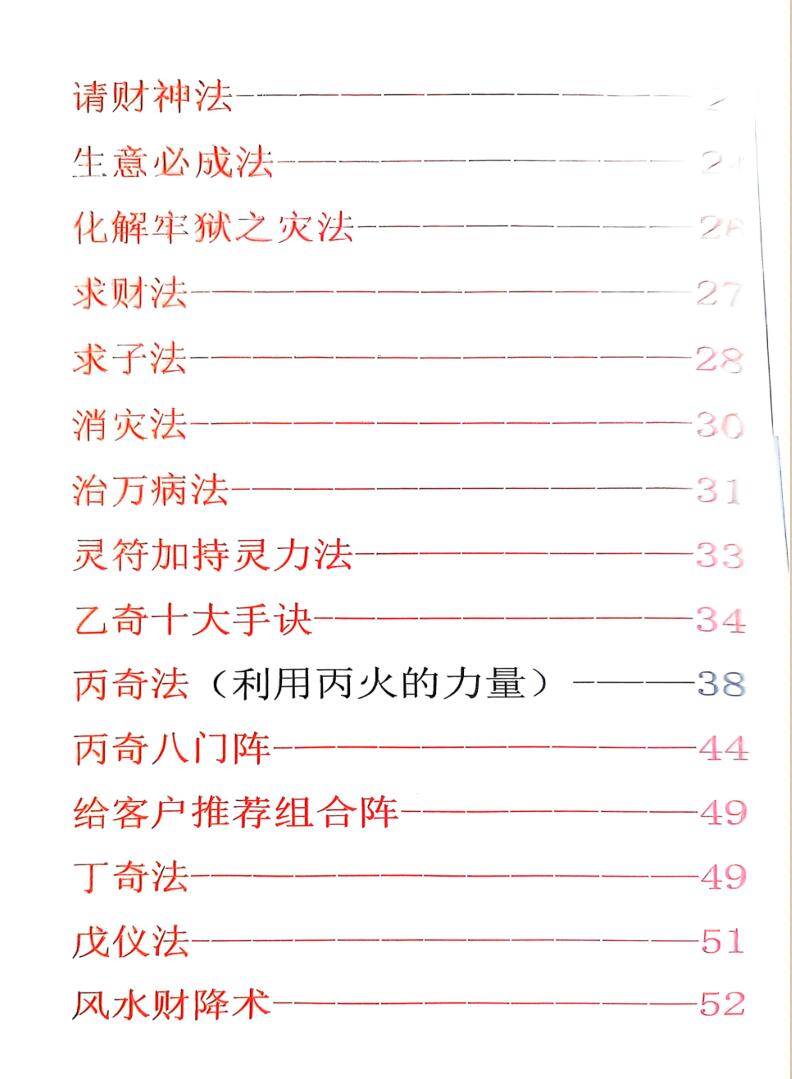 请财神法
生意必成法
化解牢狱之灾法————————26
求财法————————27
求子法————————28
消灾法————————30
治万病法————————31
灵符加持灵力法————————33
乙奇十大手诀————————34
丙奇法（利用丙火的力量）———38
丙奇八门阵————————44
给客户推荐组合阵————————49
丁奇法————————49
戊仪法————————51
风水财降术————————52